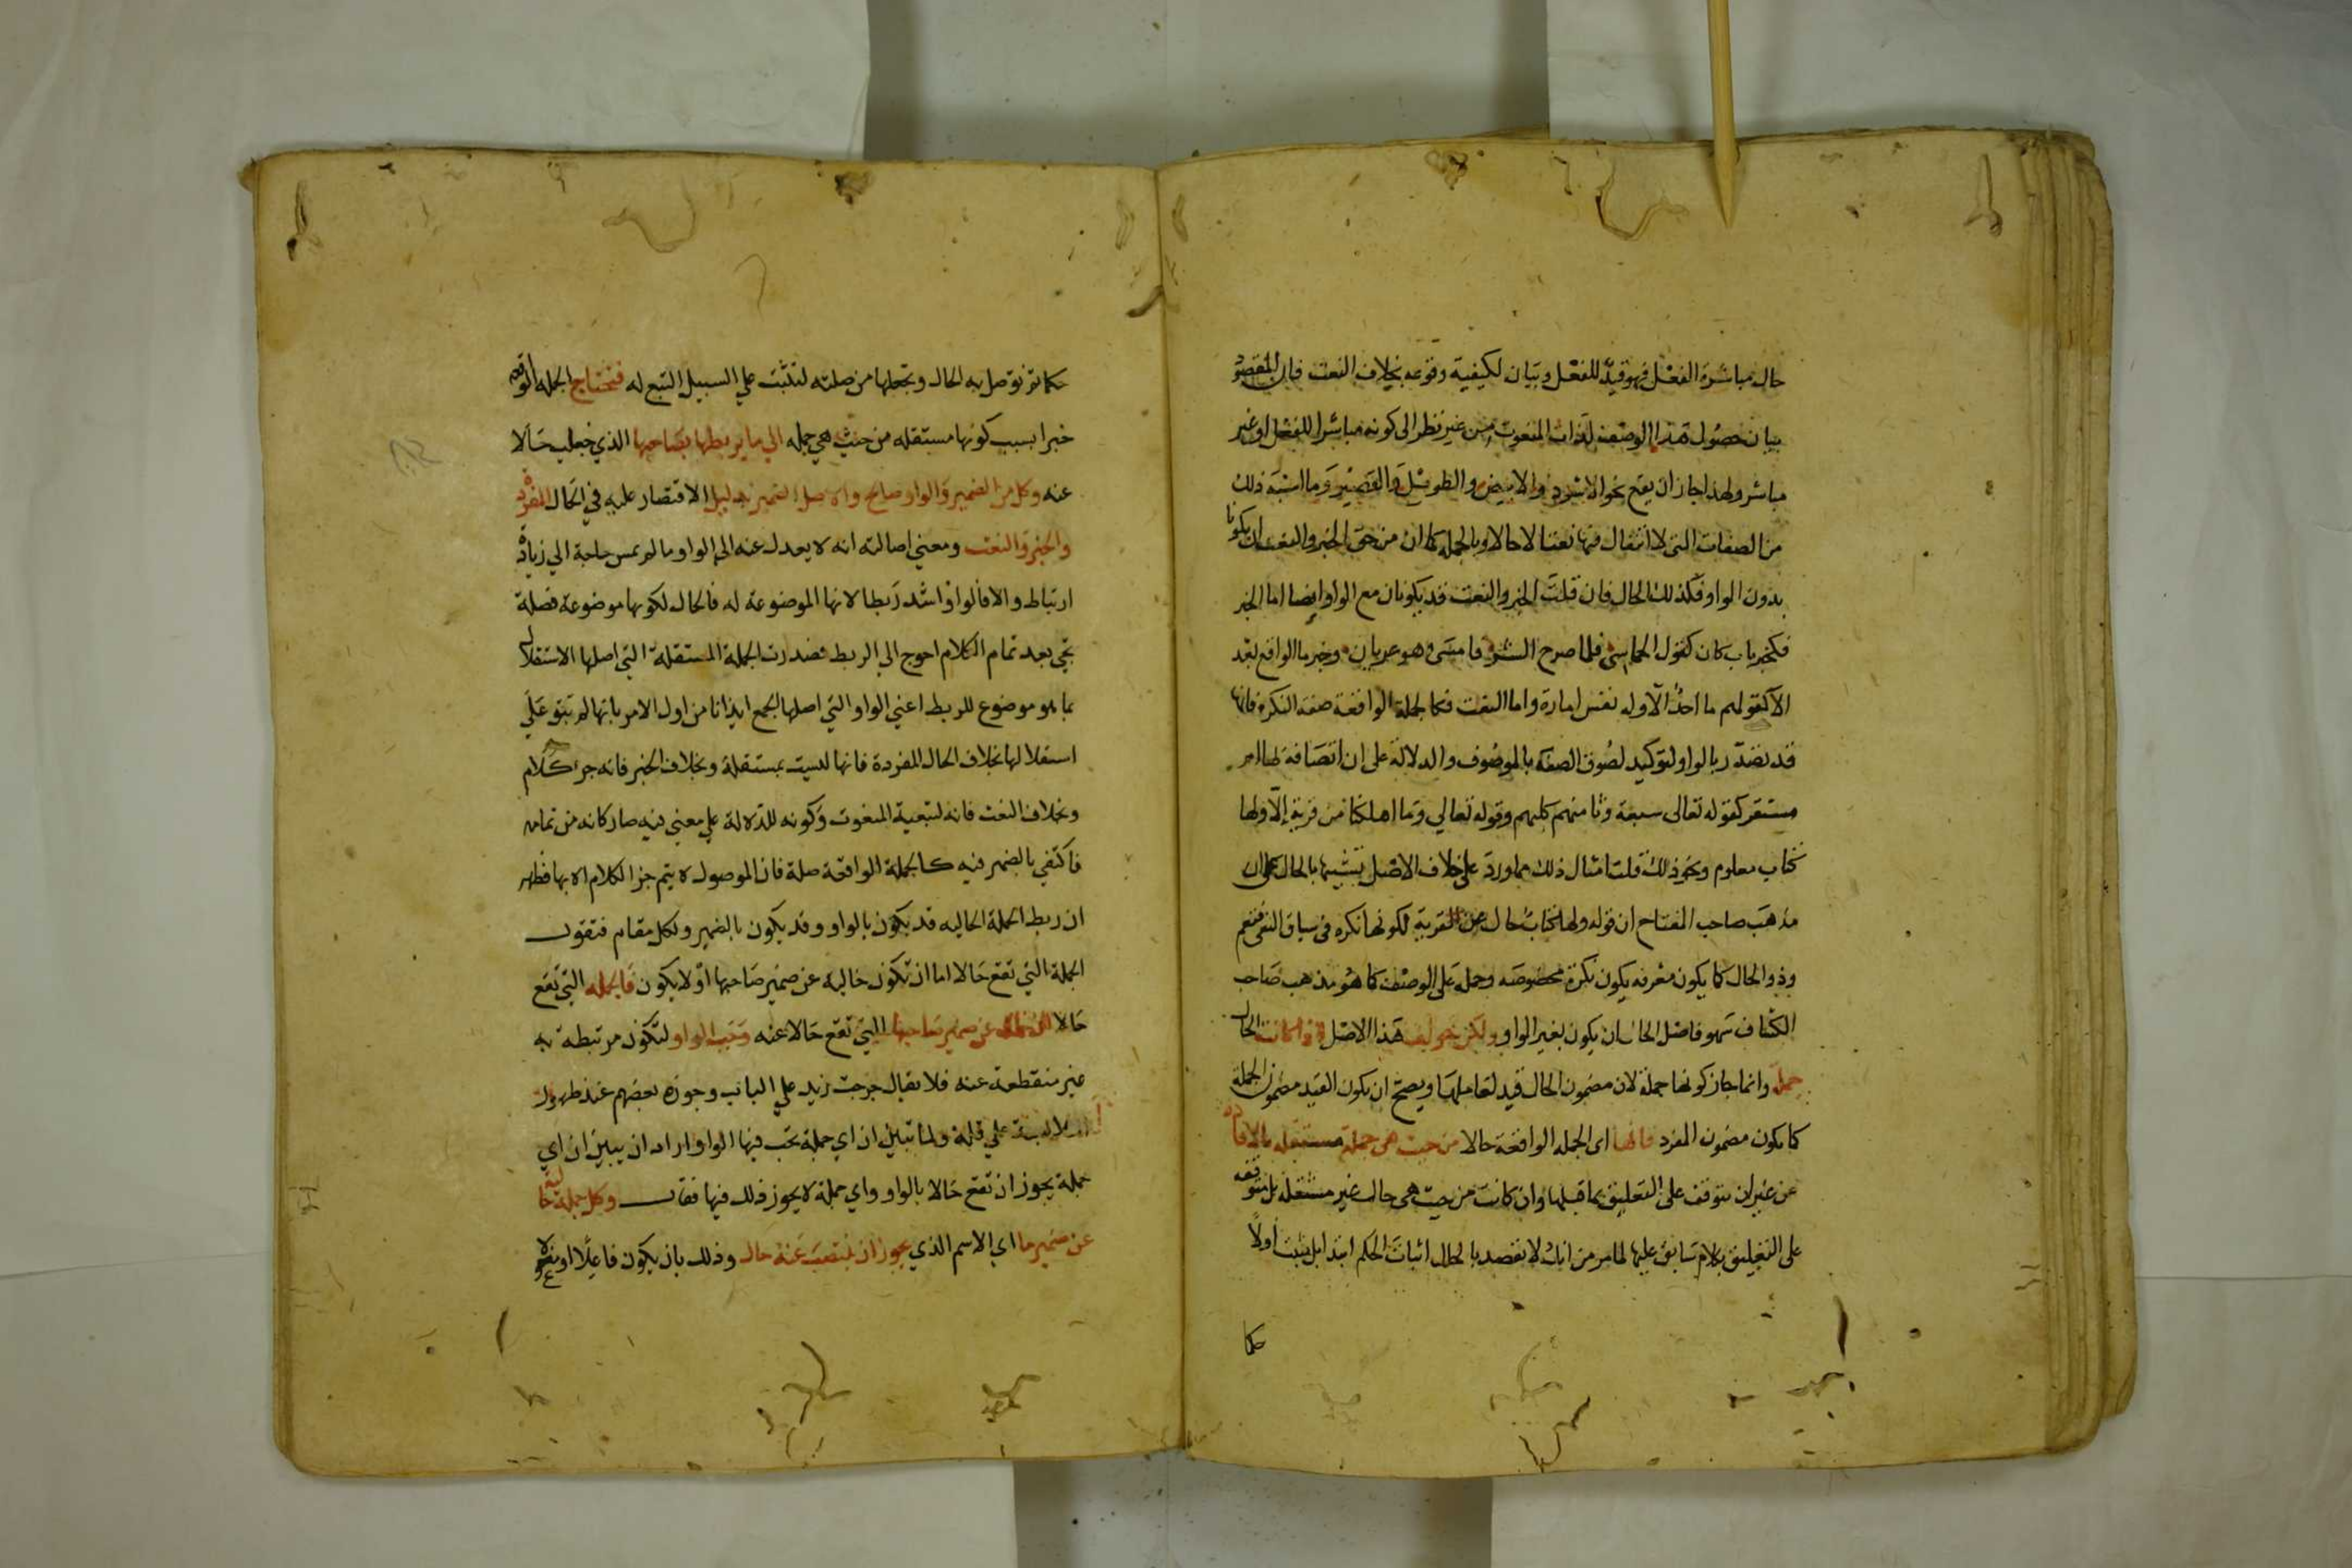 حال مباشرة الفعل فهو قيد للفعل وبيان لكيفية وقوعه بخلاف النعت فان المقصود
بيان حصول هذا الوصف لذات المنعوت من غير نظر الى كونه مباشرا للفعل او غير
مباشر ولهذا جاز ان يقع نحو الاسود والابيض والطويل والقصير وما اشبه ذلك
من الصفات التى لا انتقال فيها نعتا لا حالا وبالجملة كما ان من حق الخبر والنعت ان يكونا
بدون الواو فكذلك الحال فان قلت الخبر والنعت قد يكونان مع الواو ايضا اما الخبر
فكخبر باب كان كقول الحماسى فلما صرح الشر فامسى وهو عريان وخبر ما الواقع بعد
الا كقولهم ما احد الا وله نفس امارة واما النعت فكالجملة الواقعة صفة النكرة فانها
قد تصدر بالواو لتوكيد لصوق الصفة بالموصوف والدلالة على ان اتصافه بها امر
مستقر كقوله تعالى سبعة وثامنهم كلبهم وقوله تعالي وما اهلكنا من قرية الا ولها
كتاب معلوم ونحو ذلك قلت امثال ذلك مما ورد على خلاف الاصل تشبيها بالحال على ان
مذهب صاحب المفتاح ان قوله ولها كتاب حال عن القرية لكونها نكرة فى سياق النفى فتعم
وذو الحال كما يكون معرفه يكون نكرة مخصوصه وحمله على الوصف كما هو مذهب صاحب
الكشاف سهو فاصل الحال ان يكون بغير الواو ولكن خولف هذا الاصل اذا كانت الحال
جملة وانما جاز كونها جملة لان مضمون الحال قيد لعاملها ويصح ان يكون القيد مضمون الجملة
كما يكون مضمون المفرد فانها اى الجملة الواقعة حالا من حيث هى جملة مستقلة بالافادة
من غير ان تتوقف على التعليق بما قبلها وان كانت من حيث هى حال غير مستقلة بل متوقفه
على التعليق بكلام سابق عليها لما مر من انك لا تقصد بالحال اثبات الحكم ابتدا بل تثبت اولاً
حكما
حكما ثم توصل به الحال وتجعلها من صلته لتثبت علي السبيل التبع له فتحتاج الجمله الواقعه
خبرا بسبب كونها مستقله من حيث هي جمله الي ما يربطها بصاحبها الذي جعلت حالا
عنه وكل من الضمير والواو صالح والاصل الضمير بدليل الاقتصار عليه في الحال المفرد
والخبر والنعت ومعني اصالته انه لا يعدل عنه الى الواو ما لم تمس حاجة الي زيادة
ارتباط والا فالواو اشد ربطا لانها الموضوعة له فالحال لكونها موضوعة فضلة
تجي بعد تمام الكلام احوج الي الربط فصدرت الجملة المستقلة التي اصلها الاستقلال
بما هو موضوع للربط اعني الواو التي اصلها الجمع ايذانا من اول الامر بانها لم تبق علي
استقلالها بخلاف الحال المفردة فانها ليست بمستقلة وبخلاف الخبر فانه جزء كلام
وبخلاف النعت فانه لتبعية المنعوت وكونه للدلالة علي معني فيه صار كانه من تمامه
فاكتفي بالضمير فيه كالجملة الواقعة صلة فان الموصول لا يتم جزا لكلام الا بها فظهر
ان ربط الجملة الحاليه قد يكون بالواو وقد يكون بالضمير ولكل مقام فتقول
الجملة التي تقع حالا اما ان تكون خالية عن ضمير صاحبها او لا يكون فالجملة التي تقع
حالا ان خلت عن ضمير صاحبها التي تقع حالا عنه وجب الواو لتكون مرتبطة به
غير منقطعة عنه فلا يقال خرجت زيد علي الباب وجوزه بعضهم عند ظهور
الملابسة علي قلة ولما تبين ان اي جملة تجب فيها الواو اراد ان يبين ان اي
جملة يجوز ان تقع حالا بالواو واي جملة لا يجوز ذلك فيها فقال وكل جملة خالية
عن ضمير ما اي الاسم الذي يجوز ان ينتصب عنه حال وذلك بان يكون فاعلا او مفعولا